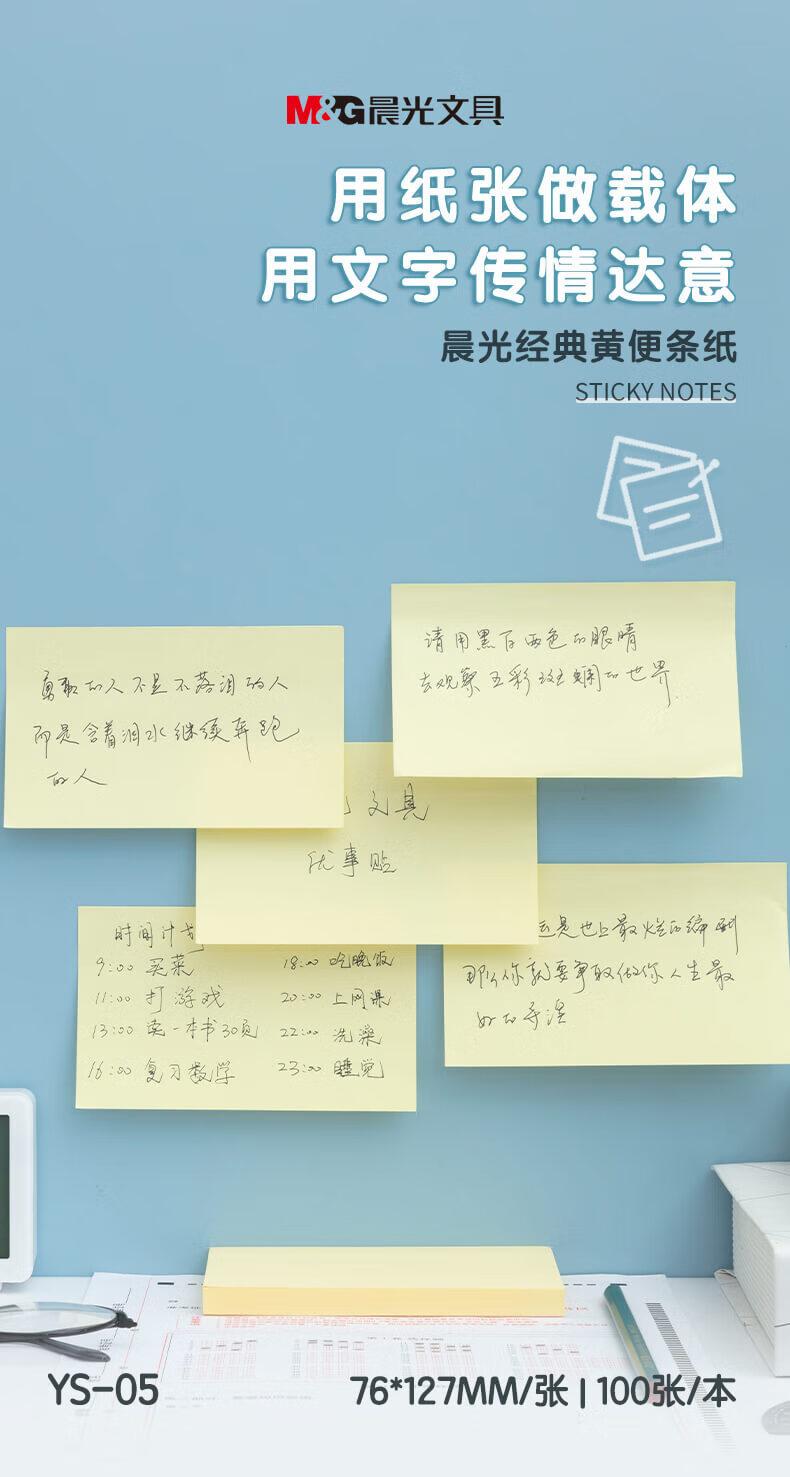 M&G晨光文具
用纸张做载体
用文字传情达意
晨光经典黄便条纸
STICKY NOTES
请用黑百两色的眼睛
去观察五彩斑斓的世界
勇敢的人不是不落泪的人
而是含着泪水继续奔跑
的人
文具
优事贴
时间计划
9:00 买菜
11:00 打游戏
13:00 读一本书30页
16:00 复习数学
18:00 吃晚饭
20:00 上网课
22:00 洗澡
23:00 睡觉
运是世上最烂的编剧
那么你就要争取做你人生最
好的导演
YS-05
76*127MM/张 | 100张/本